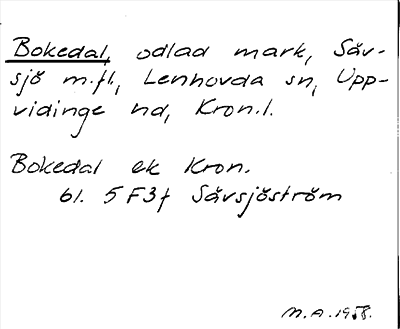 Bokedal, odlad mark, Såv-
sjö m.fl., Lenhovda sn, Upp-
vidinge hd, Kron.l.
Bokedal ek Kron.
bl. 5F3f Såvsjöström
M.A. 1958.